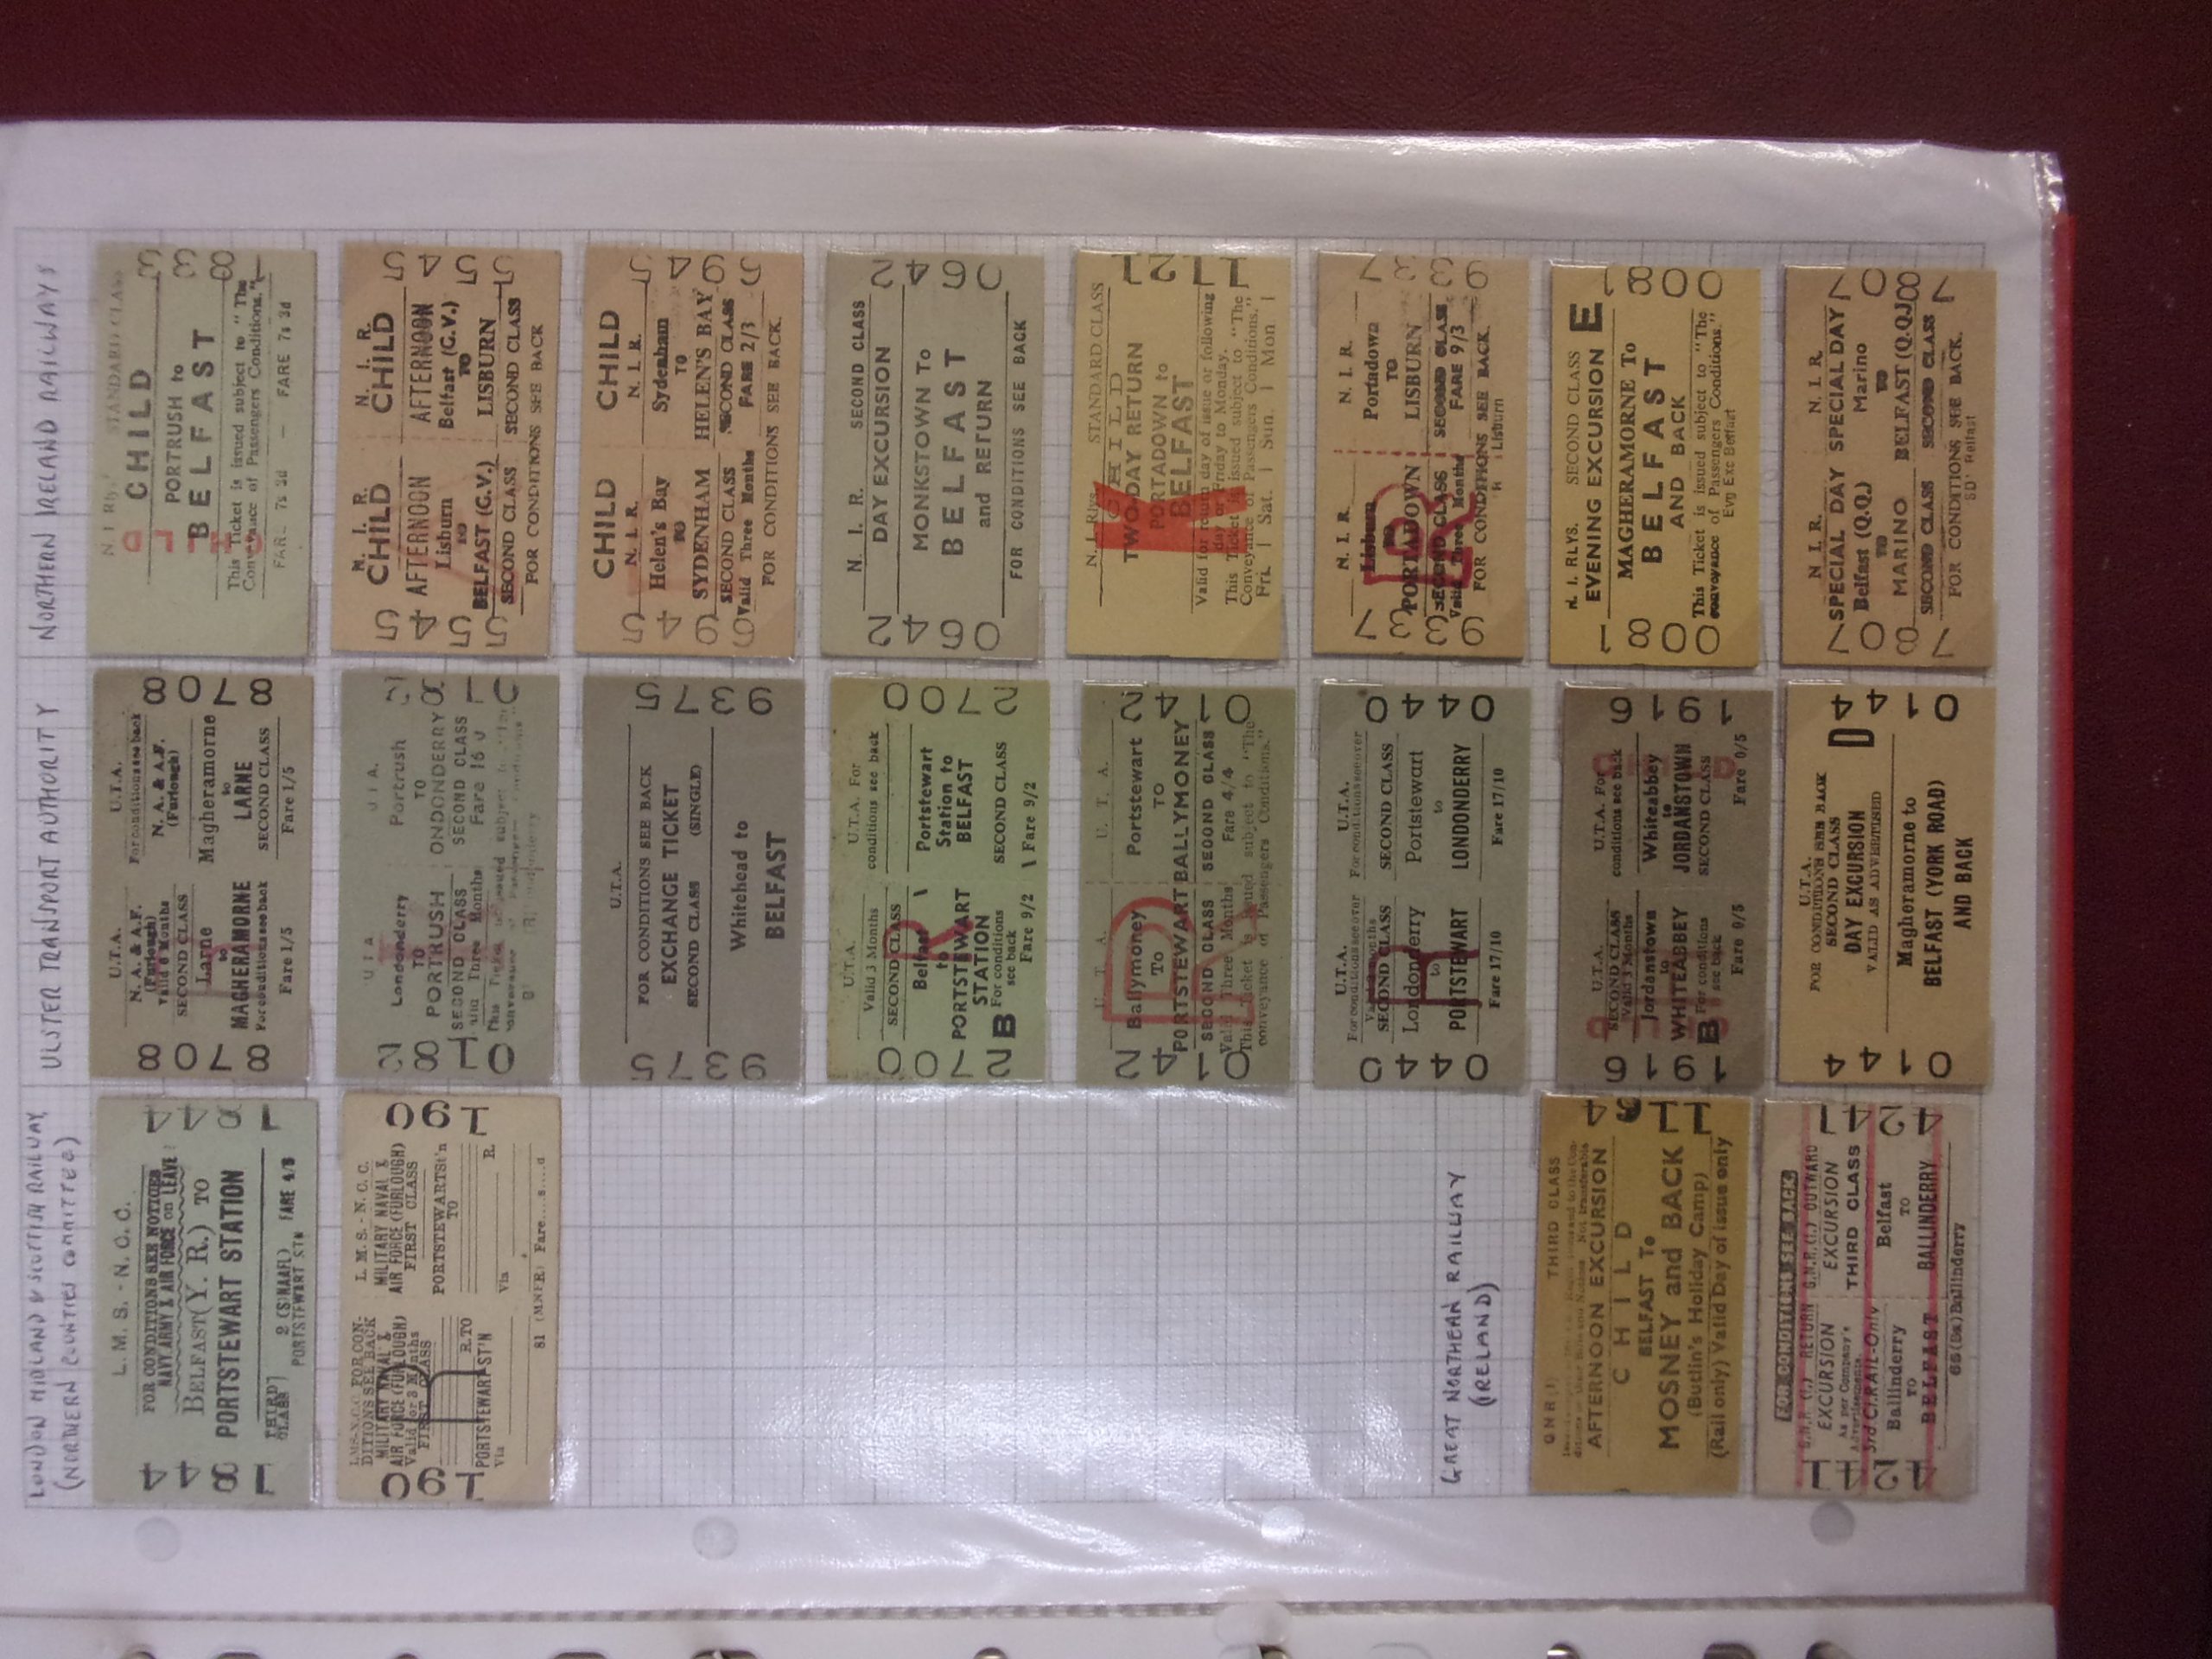 LONDON MIDLAND & SCOTTISH RAILWAY
(NORTHERN COUNTIES COMMITTEE)
L. M. S. - N. C. C.
FOR CONDITIONS SEE NOTICES
NAVY, ARMY & AIR FORCE on LEAVE
BELFAST (Y. R.) TO
PORTSTEWART STATION
THIRD CLASS
2 (S)(NAAFL) FARE 4/8
PORTSTEWART STN
4481
4481
L. M. S. - N. C. C.
MILITARY NAVAL &
AIR FORCE (FURLOUGH)
FIRST CLASS
PORTSTEWARTSt'n
TO
Via R.
81 (MNFR) Fare...s....d
L.M.S.-N.C.C. FOR CON-
DITIONS SEE BACK
MILITARY NAVAL &
AIR FORCE (FURLOUGH)
Valid for 3 Months
FIRST CLASS
R.TO
PORTSTEWART ST'N
Via
0691
0691
GREAT NORTHERN RAILWAY
(IRELAND)
G N R (I) THIRD CLASS
AFTERNOON EXCURSION
CHILD
BELFAST To
MOSNEY and BACK
(Butlin's Holiday Camp)
(Rail only) Valid Day of issue only
FOR CONDITIONS SEE BACK
G.N.R.(I.) RETURN G.N.R.(I.) OUTWARD
EXCURSION EXCURSION
As per Company's
Advertisements.
THIRD CLASS
3rd Cl. RAIL-Only
Ballinderry Belfast
TO TO
BELFAST BALLINDERRY
Ballinderry
1424
1424
ULSTER TRANSPORT AUTHORITY
U.T.A. U.T.A.
N. A. & A.F. For conditions see back
(Furlough) N. A. & A.F.
Valid 6 Months (Furlough)
SECOND CLASS
Larne Magheramorne
to to
MAGHERAMORNE LARNE
For conditions see back SECOND CLASS
Fare 1/5 Fare 1/5
8078
8078
U T A U T A.
Londonderry Portrush
TO TO
PORTRUSH LONDONDERRY
SECOND CLASS SECOND CLASS
Valid Three Months
U.T.A.
FOR CONDITIONS SEE BACK
EXCHANGE TICKET
SECOND CLASS (SINGLE)
Whitehead to
BELFAST
5739
5739
U.T.A. U.T.A. For
Valid 3 Months conditions see back
SECOND CLASS
Belfast Portstewart
to Station to
PORTSTEWART BELFAST
STATION
B For conditions SECOND CLASS
see back
Fare 9/2 Fare 9/2
R
0072
0072
U. T. A. U. T. A.
Ballymoney Portstewart
To TO
PORTSTEWART BALLYMONEY
SECOND CLASS SECOND CLASS
Valid Three Months Fare 4/4
This Ticket is issued subject to "The
conveyance of Passengers Conditions."
R
2410
2410
U.T.A. U.T.A.
For conditions see over For conditions see over
SECOND CLASS SECOND CLASS
Londonderry Portstewart
to to
PORTSTEWART LONDONDERRY
Fare 17/10 Fare 17/10
0440
0440
U.T.A. U.T.A. For
SECOND CLASS conditions see back
Valid 3 Months
Jordanstown Whiteabbey
to to
WHITEABBEY JORDANSTOWN
B For conditions SECOND CLASS
see back
Fare 0/5 Fare 0/5
6191
6191
U.T.A.
FOR CONDITIONS SEE BACK
SECOND CLASS
DAY EXCURSION
VALID AS ADVERTISED
D
Magheramorne to
BELFAST (YORK ROAD)
AND BACK
4410
4410
NORTHERN IRELAND RAILWAYS
N I Rlys STANDARD CLASS
CHILD
PORTRUSH to
BELFAST
This Ticket is issued subject to "The
Conveyance of Passengers Conditions."
FARE 7s 3d — FARE 7s 3d
N. I. R. N. I. R.
CHILD CHILD
AFTERNOON AFTERNOON
Lisburn Belfast (G.V.)
TO TO
BELFAST (G.V.) LISBURN
SECOND CLASS SECOND CLASS
FOR CONDITIONS SEE BACK
5455
5455
CHILD CHILD
N. I. R. N. I. R.
Helen's Bay Sydenham
TO TO
SYDENHAM HELEN'S BAY
SECOND CLASS SECOND CLASS
Valid Three Months FARE 2/3
FOR CONDITIONS SEE BACK.
N. I. R. SECOND CLASS
DAY EXCURSION
MONKSTOWN To
BELFAST
and RETURN
FOR CONDITIONS SEE BACK
2460
2460
N. I. Rlys. STANDARD CLASS
CHILD
TWO-DAY RETURN
PORTADOWN to
BELFAST
Valid for return day of issue or following
day or Friday to Monday.
This Ticket is issued subject to "The
Conveyance of Passengers Conditions."
Fri. | Sat. | Sun. | Mon |
1211
N. I. R. N. I. R.
Lisburn Portadown
TO TO
PORTADOWN LISBURN
SECOND CLASS SECOND CLASS
Valid Three Months FARE 9/3
FOR CONDITIONS SEE BACK.
Lisburn
R
7339
7339
N. I. RLYS. SECOND CLASS
EVENING EXCURSION E
MAGHERAMORNE To
BELFAST
AND BACK
This Ticket is issued subject to "The
conveyance of Passengers Conditions."
Evg Exc Belfast
1800
1800
N. I. R. N. I. R.
SPECIAL DAY SPECIAL DAY
Belfast (Q.Q.) Marino
TO TO
MARINO BELFAST (Q.Q.)
SECOND CLASS SECOND CLASS
FOR CONDITIONS SEE BACK.
SD Belfast
7087
7087